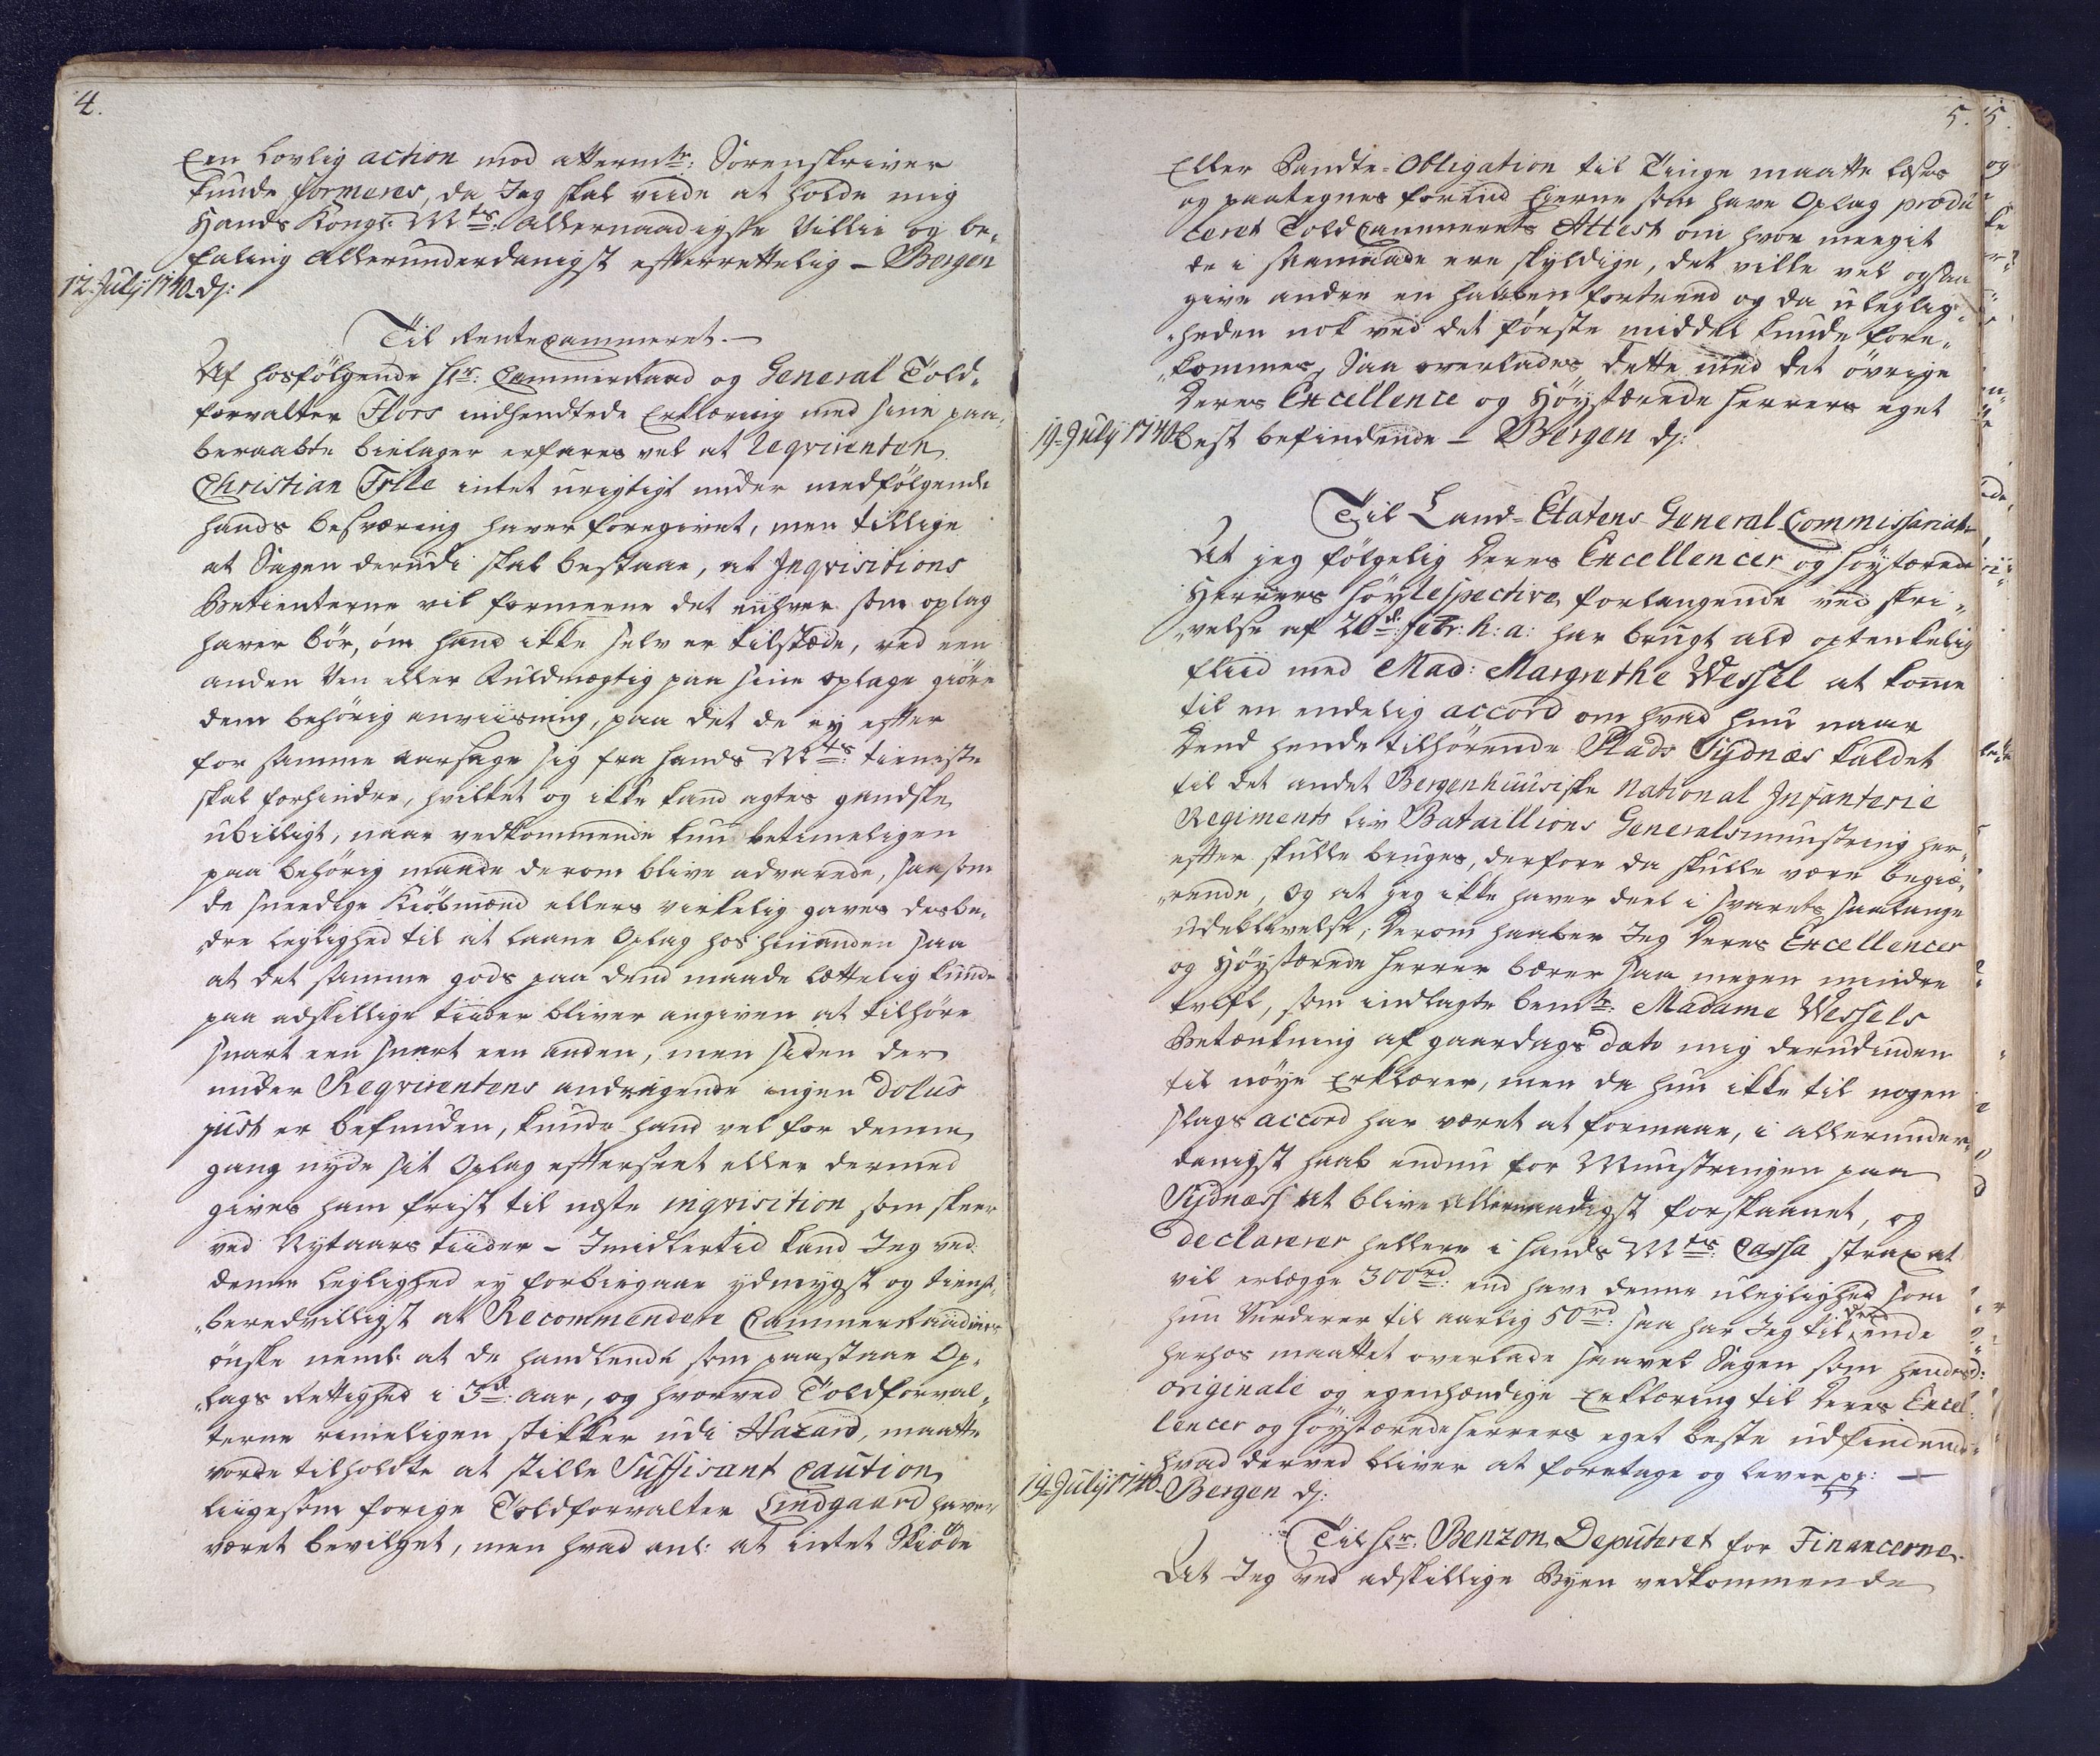 4.
Een lovlig action mod attermte: Sorenskriver
kunde formeres, da Jeg skal viide at holde mig
Hands Kongl: Mts: allernaadigste Villie og be„
faling allerunderdanigst efterrettelig – Bergen
12. July 1740. dj:
Til Rentecammeret. –
Af hosfölgende Hr: CammerRaad og General Told„
forvalter Flors indhendtede Erklæring med sine paa„
beraabte bielager erfares vel at Reqvirenten
Christian Tolle intet urigtigt under medfölgende
hands besværing haver foregivet, men tillige
at Sagen derudi skal bestaae, at Inqvisitions
Betienterne vil formeene det enhver som oplag
haver bör, om hand ikke selv er tilstæde, ved een
anden Ven eller Fuldmægtig paa sine oplage giöre
dem behörig anviisning, paa det de ey efter
for samme aarsage sig fra hands Mts: tieniste
skal forhindre, hvilket og ikke kand agtes gandske
ubilligt, naar vedkommende kun betimeligen
paa behörig maade derom blive advarede, saasom
de sneedige Kiöbmænd ellers virkelig gaves desbe„
„dre leylighed til at laane Oplag hos hinanden saa
at det samme gods paa dend maade lættelig kunde
paa adskillige tiider bliver angiven at tilhöre
snart een snart een anden, men siden der
under Reqvirentens andragende ingen dolus
just er befunden, kunde hand vel for denne
gang nyde sit Oplag efterseet eller dermed
gives ham frist til neste inqvisition som skeer
ved Nytaars tiider – Imidlertid kand Jeg ved
denne leylighed ey forbiegaae ydmygst og tienst„
„beredvilligst at Recommendere CammerRaadens
önske neml: at de handlende som paastaae Op„
„lags Rettighed i 3de: aar, og hvorved Toldforval„
terne rimeligen stikker udi Hazard, maatte
vorde tilholdte at stille Suffisant Caution
liigesom forige Toldforvalter Lindgaard haver
været bevilget, men hvad anl: at intet Skiöde
5.
Eller Pandte-Obligation til Tinge maatte læses
og paategnes forend Eierne som have Oplag produ
ceret ToldCammerets Attest om hvor meegit
de i saamaade ere skyldige, det ville vel ogsaa
give andre en haaben fortreed og da uleylig„
„heden nok ved det förste middel kunde fore„
„kommes, Saa overlades dette med det övrige
Deres Excellence og Höystærede Herrers eget
19. July 1740. best befindende – Bergen dj:
Til Land-Etatens General Commissariat
At jeg fölgelig Deres Excellencer og höystærede
Herrers höyrespective forlangende ved skri„
„velse af 20de: febr: h: a: har brugt ald optenkelig
fliid med Mad: Margrethe Wessel at komme
til en endelig accord om hvad hun naar
Dend hende tilhörende Plads Sydnæs kaldet
til det andet Bergenhuusiske National Infanterie
Regiments liv Bataillions Generalmunstring her„
efter skulle bruges, derfore da skulle være begiæ„
„rende, og at jeg ikke haver deel i svarets saalange
udeblivelse, Derom haaber Jeg Deres Excellencer
og Höystærede Herrer bærer saa megen mindre
tvifl, som indlagte bemte: Madame Wessels
Betænkning af gaardags dato mig derudinden
til nöye Erklærer, men da hun ikke til nogen
slags accord har været at formaae, i allerunder„
danigst haab endnu for Munstringen paa
Sydnæss at blive allernaadigst forskaanet, og
declarerer hellere i hands Mts: Cassa strax at
vil erlægge 300rd: end have denne uleylighed som
hun Vurderer til aarlig 50rd: saa har Jeg til dend ende
herhos maattet overlade saavel Sagen som hendes
originale og egenhændige Erklæring til Deres Excel„
lencer og höystærede herrers eget beste udfindende
hvad derved bliver at foretage og lever pp: –
19. July 1740. Bergen dj:
Til Hr: Benzon Deputeret for Financerne.
At Jeg ved adskillige Byen vedkommende